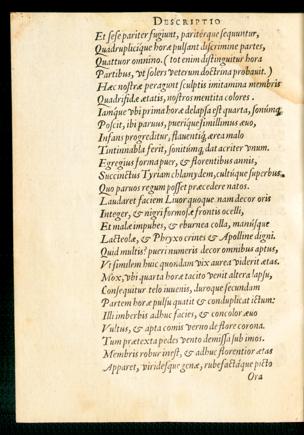 DESCRIPTIO
Et sese pariter fugiunt, pariterque sequuntur,
Quadruplicique horæ pulsant discrimine partes,
Quattuor omnino. (tot enim distinguitur hora
Partibus, vt solers veterum doctrina probauit.)
Hæc nostræ peragunt sculptis imitamina membris
Quadrifidæ ætatis, nostros mentita colores.
Iamque vbi prima horæ delapsa est quarta, sonumq;
Poscit, ibi paruus, puerique simillimus æuo,
Infans progreditur, flauentiq; ærea malo
Tintinnabla ferit, sonitumq; dat acriter vnum.
Egregius forma puer, & florentibus annis,
Succinctus Tyriam chlamydem, cultuque superbus.
Quo paruos regum posset præcedere natos.
Laudaret faciem Liuor quoque. nam decor oris
Integer, & nigri formosæ frontis ocelli,
Et malæ impubes, & eburnea colla, manusque
Lacteolæ, & Phryxo crines & Apolline digni.
Quid multis? pueri numeris decor omnibus aptus,
Vt similem huic quondam vix aurea viderit ætas.
Mox, vbi quarta horæ tacito venit altera lapsu,
Consequitur telo iuuenis, duroque secundam
Partem horæ pulsu quatit & conduplicat ictum:
Illi imberbis adhuc facies, & concolor æuo
Vultus, & apta comis verno de flore corona.
Tum prætexta pedes vento demissa sub imos.
Membris robur inest, & adhuc florentior ætas
Apparet, viridesque genæ, rubefactaque picto
Ora